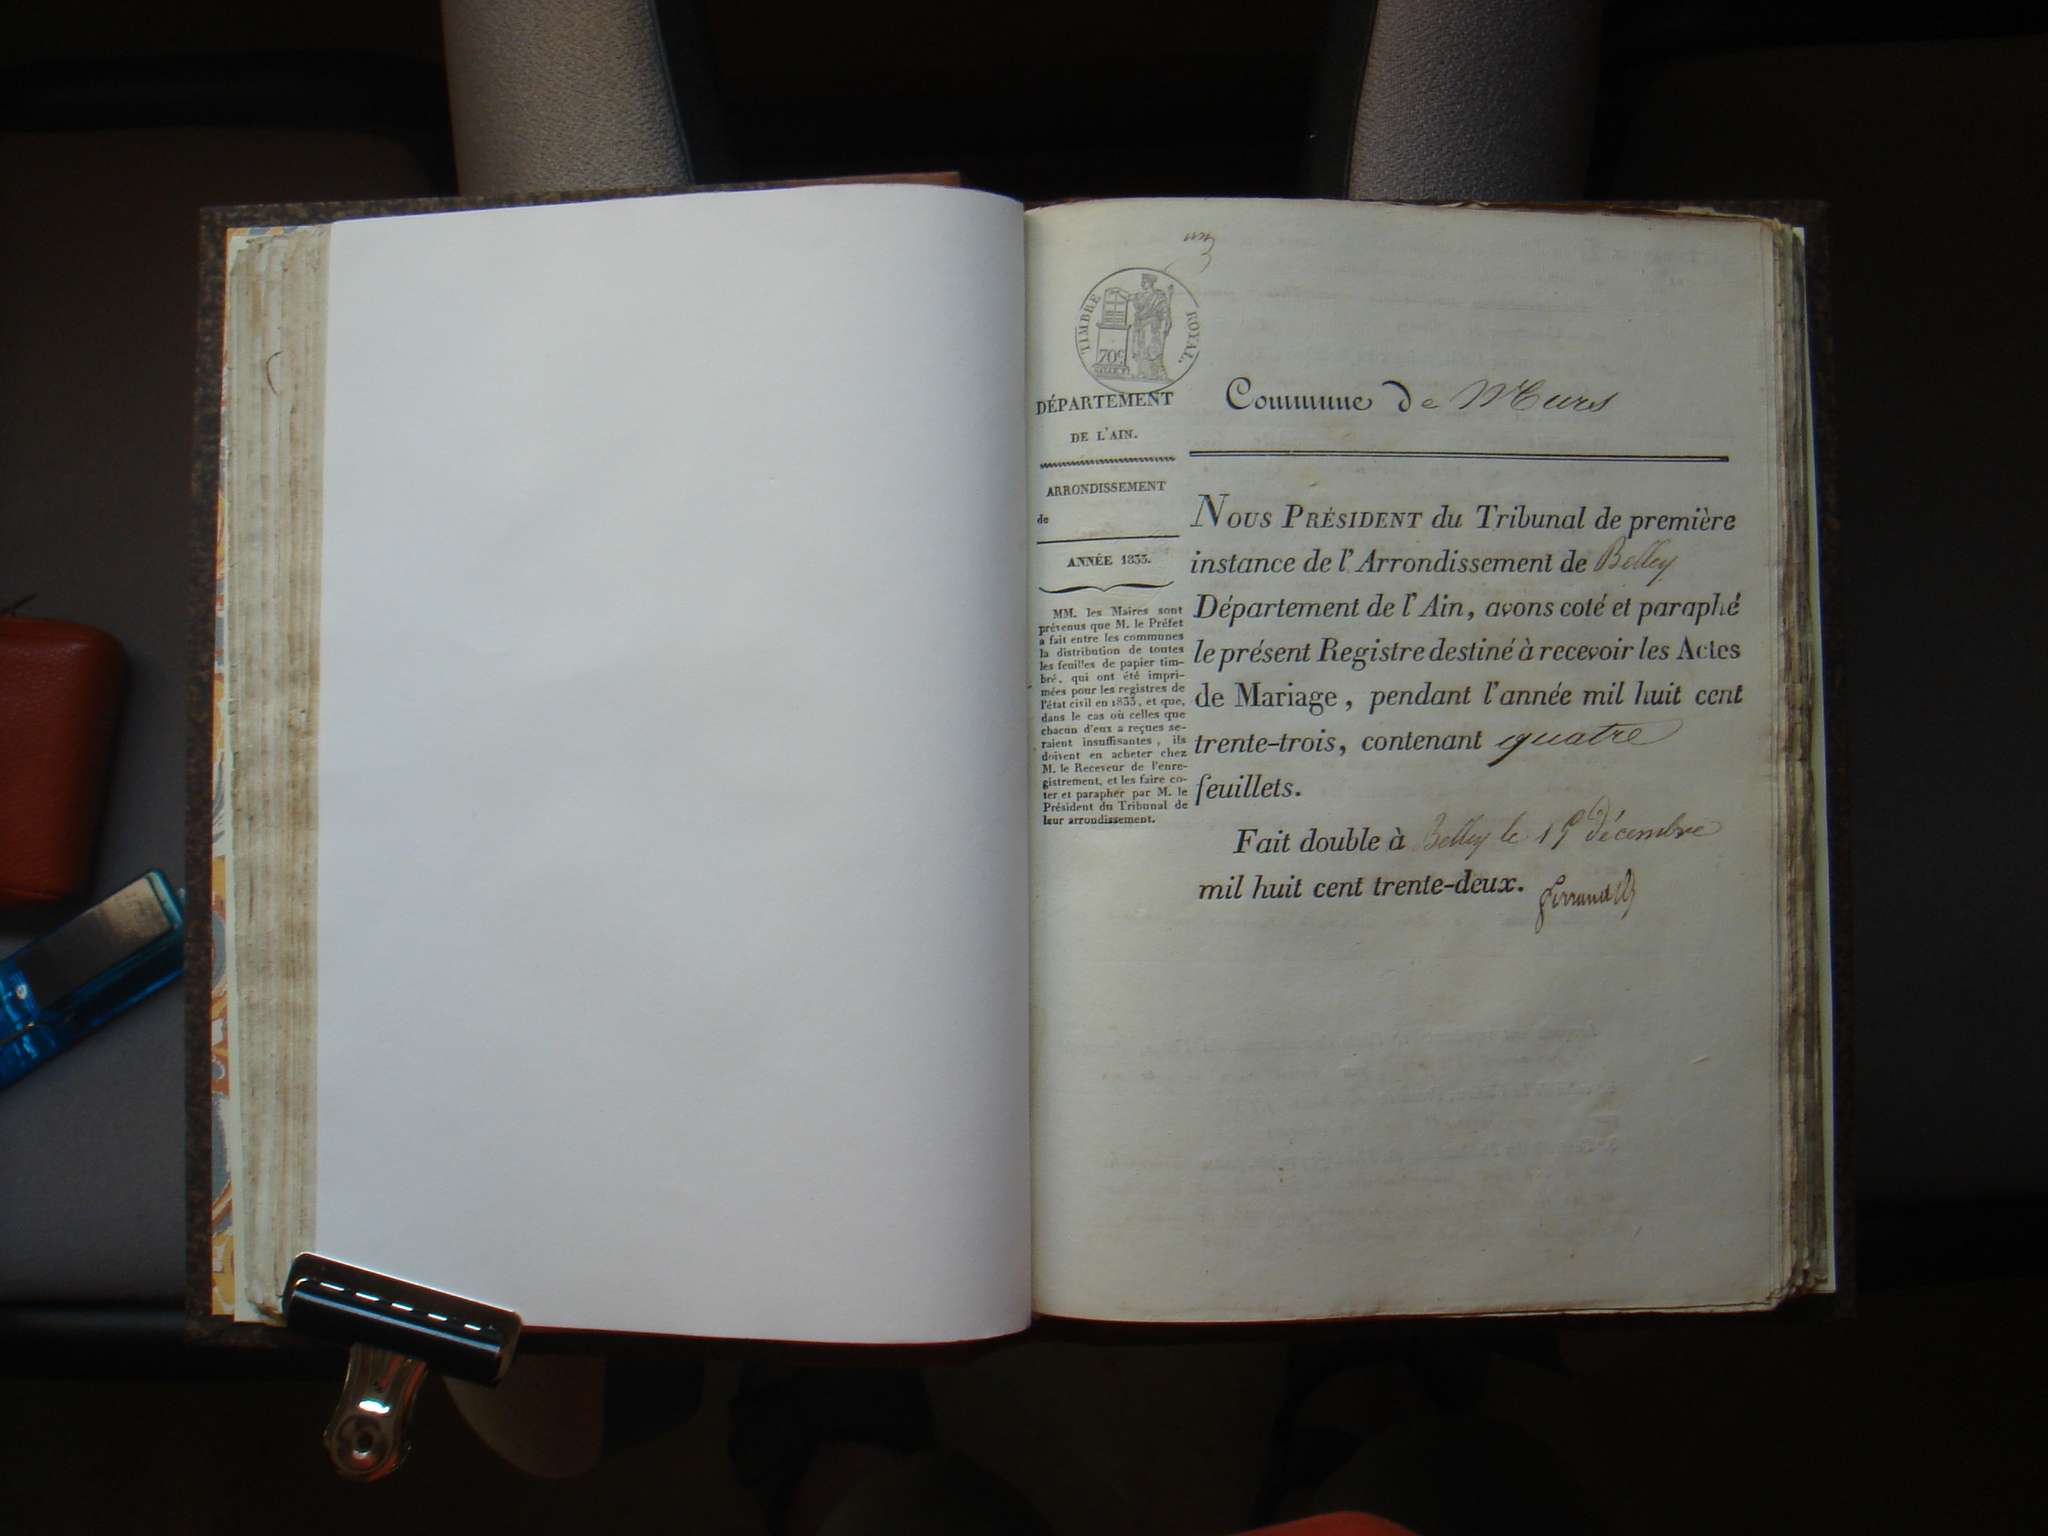 un
TIMBRE ROYAL.
70c
DÉPARTEMENT
DE L'AIN.
ARRONDISSEMENT
de
ANNÉE 1833.
MM. les Maires sont
prévenus que M. le Préfet
a fait entre les communes
la distribution de toutes
les feuilles de papier tim-
bré, qui ont été impri-
mées pour les registres de
l'état civil en 1833, et que,
dans le cas où celles que
chacun d'eux a reçues se-
raient insuffisantes, ils
doivent en acheter chez
M. le Receveur de l'enre-
gistrement, et les faire co-
ter et parapher par M. le
Président du Tribunal de
leur arrondissement.
Commune de Murs
NOUS PRÉSIDENT du Tribunal de première
instance de l'Arrondissement de Belley
Département de l'Ain, avons coté et paraphé
le présent Registre destiné à recevoir les Actes
de Mariage, pendant l'année mil huit cent
trente-trois, contenant quatre
feuillets.
Fait double à Belley le décembre
mil huit cent trente-deux.